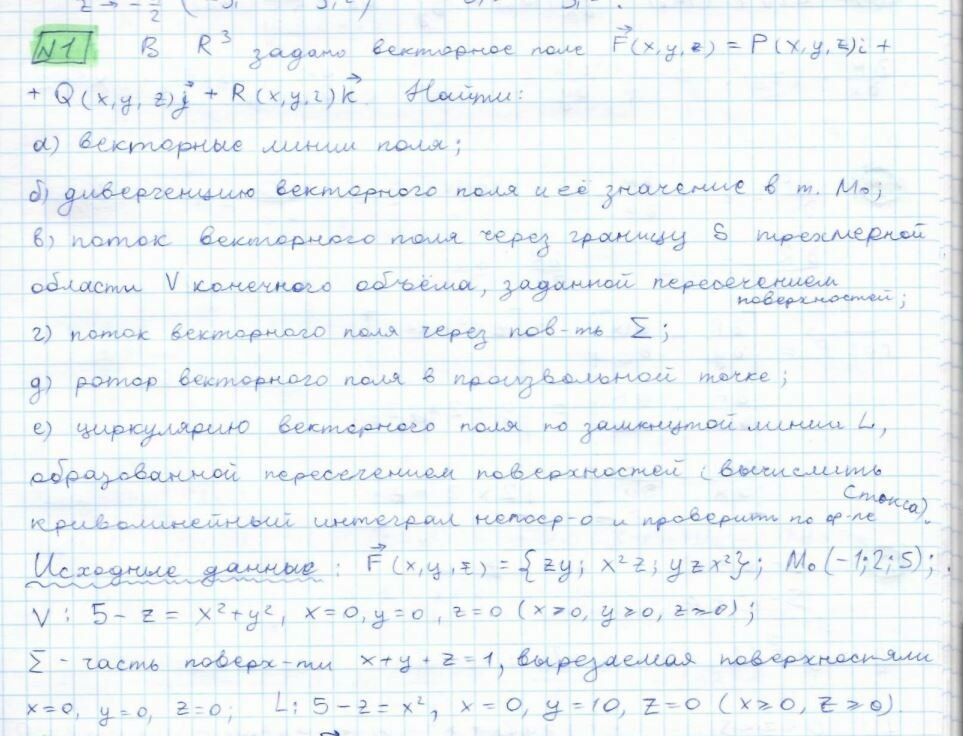 N1 В R³ задано векторное поле F⃗(x,y,z) = P(x,y,z)i +
+ Q(x,y,z)j⃗ + R(x,y,z)k⃗. Найти:
а) векторные линии поля;
б) дивергенцию векторного поля и её значение в т. M₀;
в) поток векторного поля через границу S трехмерной
области V конечного объёма, заданной пересечением
поверхностей;
г) поток векторного поля через пов-ть Σ;
д) ротор векторного поля в произвольной точке;
е) циркулярию векторного поля по замкнутой линии L,
образованной пересечением поверхностей (вычислить
криволинейный интеграл непоср-о и проверить по ф-ле Стокса).
Исходные данные: F⃗(x,y,z) = {zy; x²z; yzx²}; M₀(-1;2;5);
V: 5-z = x²+y², x=0, y=0, z=0 (x≥0, y≥0, z≥0);
Σ - часть поверх-ти x+y+z=1, вырезаемая поверхностями
x=0, y=0, z=0; L: 5-z=x², x=0, y=10, z=0 (x≥0, z≥0).